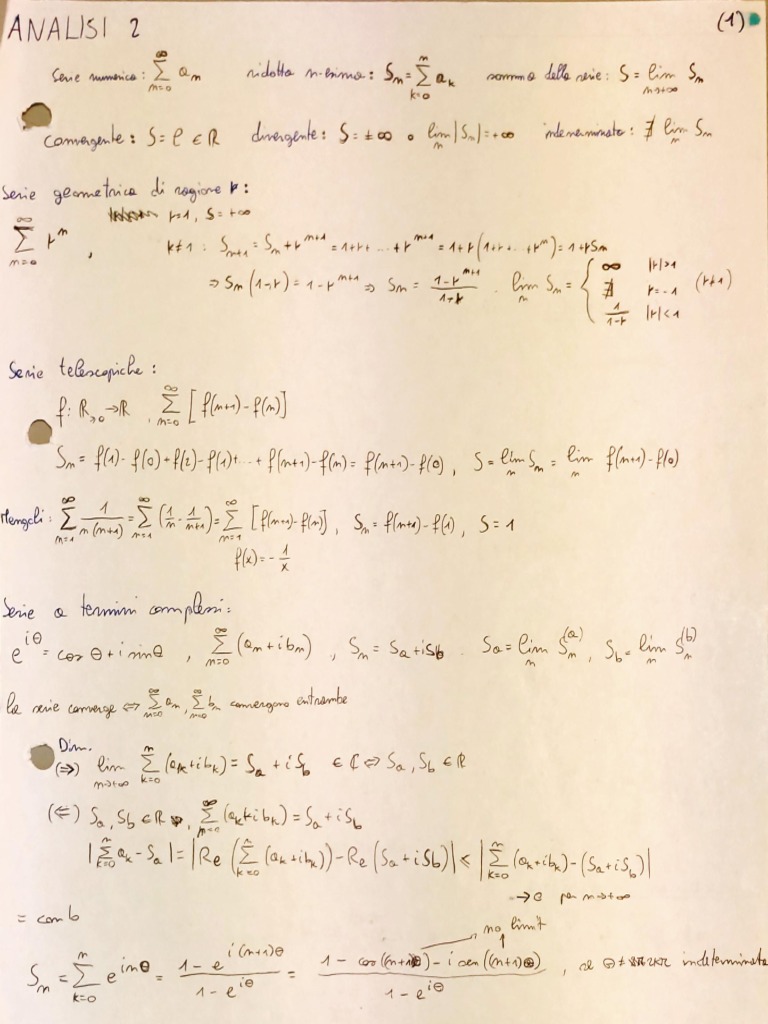 ANALISI 2 (1)
Serie numerica: ∑_{n=0}^{∞} a_n ridotta n-esima: S_n = ∑_{k=0}^{n} a_k somma della serie: S = lim_{n→+∞} S_n
convergente: S = ℓ ∈ ℝ divergente: S = ±∞ o lim_n |S_n| = +∞ indeterminata: ∄ lim_n S_n
Serie geometrica di ragione r:
r=1, S=+∞
∑_{n=0}^{∞} r^n , r≠1 : S_{n+1} = S_n + r^{n+1} = 1+r+...+r^{n+1} = 1+r(1+r+...+r^n) = 1+rS_n
⇒ S_n(1-r) = 1-r^{n+1} ⇒ S_n = \frac{1-r^{n+1}}{1-r} . lim_n S_n = { ∞ |r|>1 ; ∄ r=-1 ; \frac{1}{1-r} |r|<1 (r≠1)
Serie telescopiche:
f: ℝ_{≥0} → ℝ , ∑_{n=0}^{∞} [f(n+1)-f(n)]
S_n = f(1)-f(0)+f(2)-f(1)+...+f(n+1)-f(n) = f(n+1)-f(0), S = lim_n S_n = lim_n f(n+1)-f(0)
Mengoli: ∑_{n=1}^{∞} \frac{1}{n(n+1)} = ∑_{n=1}^{∞} (\frac{1}{n}-\frac{1}{n+1}) = ∑_{n=1}^{∞} [f(n+1)-f(n)], S_n = f(n+1)-f(1), S=1
f(x) = -\frac{1}{x}
Serie a termini complessi:
e^{iθ} = cos θ + i sin θ , ∑_{n=0}^{∞} (a_n+ib_n) , S_n = S_a+iS_b . S_a = lim_n S_n^{(a)}, S_b = lim_n S_n^{(b)}
la serie converge ⇔ ∑_{n=0}^{∞} a_n, ∑_{n=0}^{∞} b_n convergono entrambe
Dim.
(⇒) lim_{n→+∞} ∑_{k=0}^{n} (a_k+ib_k) = S_a + iS_b ∈ ℂ ⇔ S_a, S_b ∈ ℝ
(⇐) S_a, S_b ∈ ℝ , ∑_{n=0}^{∞} (a_k+ib_k) = S_a+iS_b
|∑_{k=0}^{n} a_k - S_a| = |Re(∑_{k=0}^{n} (a_k+ib_k)) - Re(S_a+iS_b)| ≤ |∑_{k=0}^{n} (a_k+ib_k) - (S_a+iS_b)|
→ 0 per n→+∞
= con b
no limit
S_n = ∑_{k=0}^{n} e^{inθ} = \frac{1-e^{i(n+1)θ}}{1-e^{iθ}} = \frac{1-cos((n+1)θ)-i sen((n+1)θ)}{1-e^{iθ}} , se θ ≠ 2kπ indeterminata